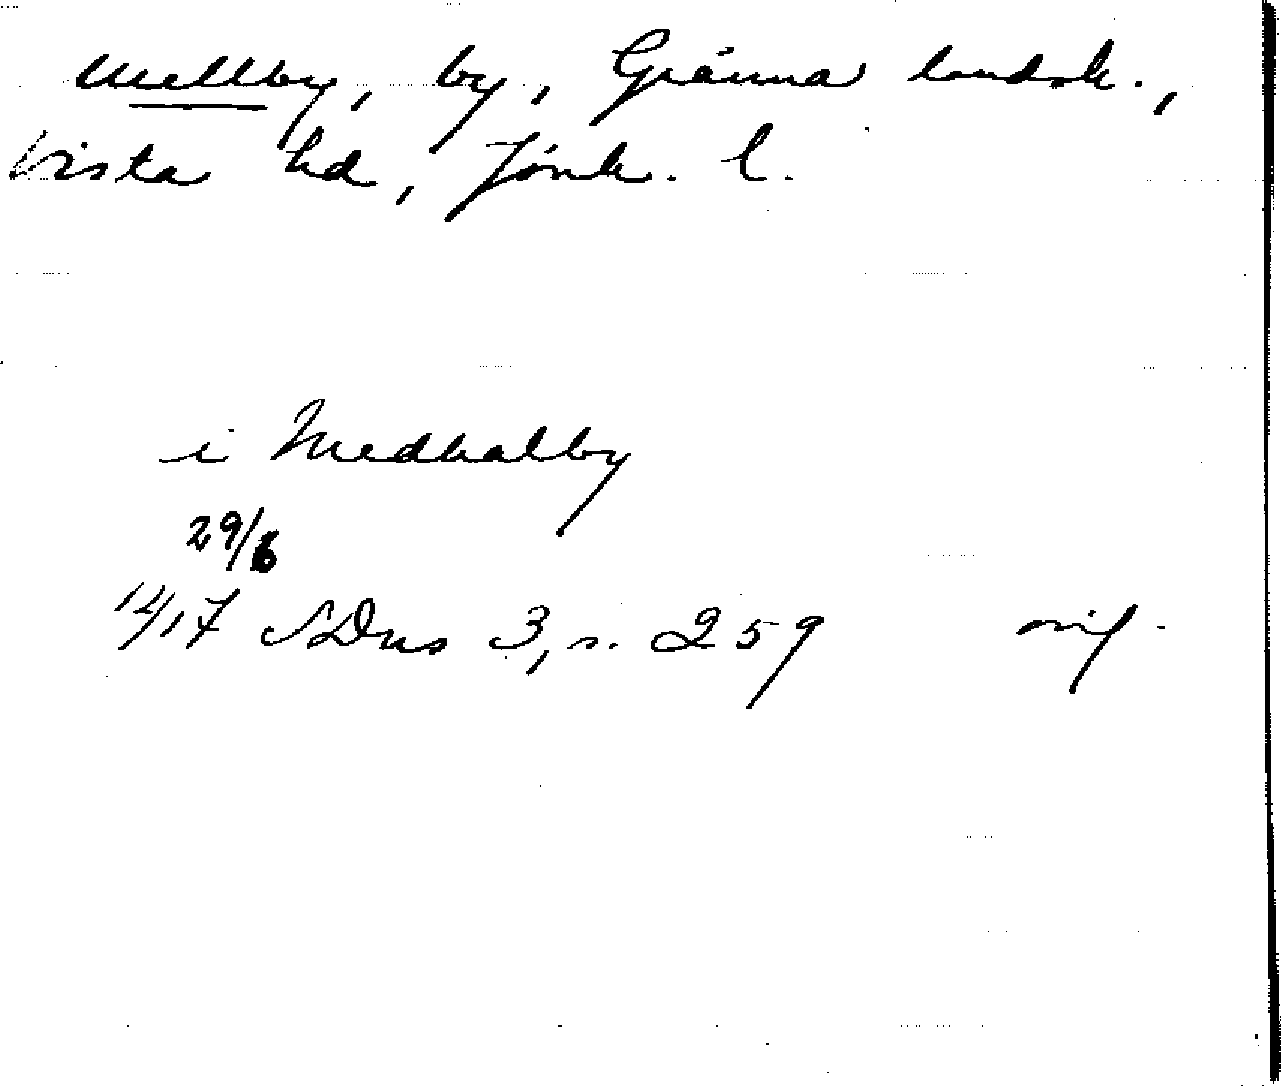 Mellby, by, Gränna landsk.,
Vista hd, Jönk. l.
i Medhalby
29/6
14/17 SDns 3, s. 259 orig.